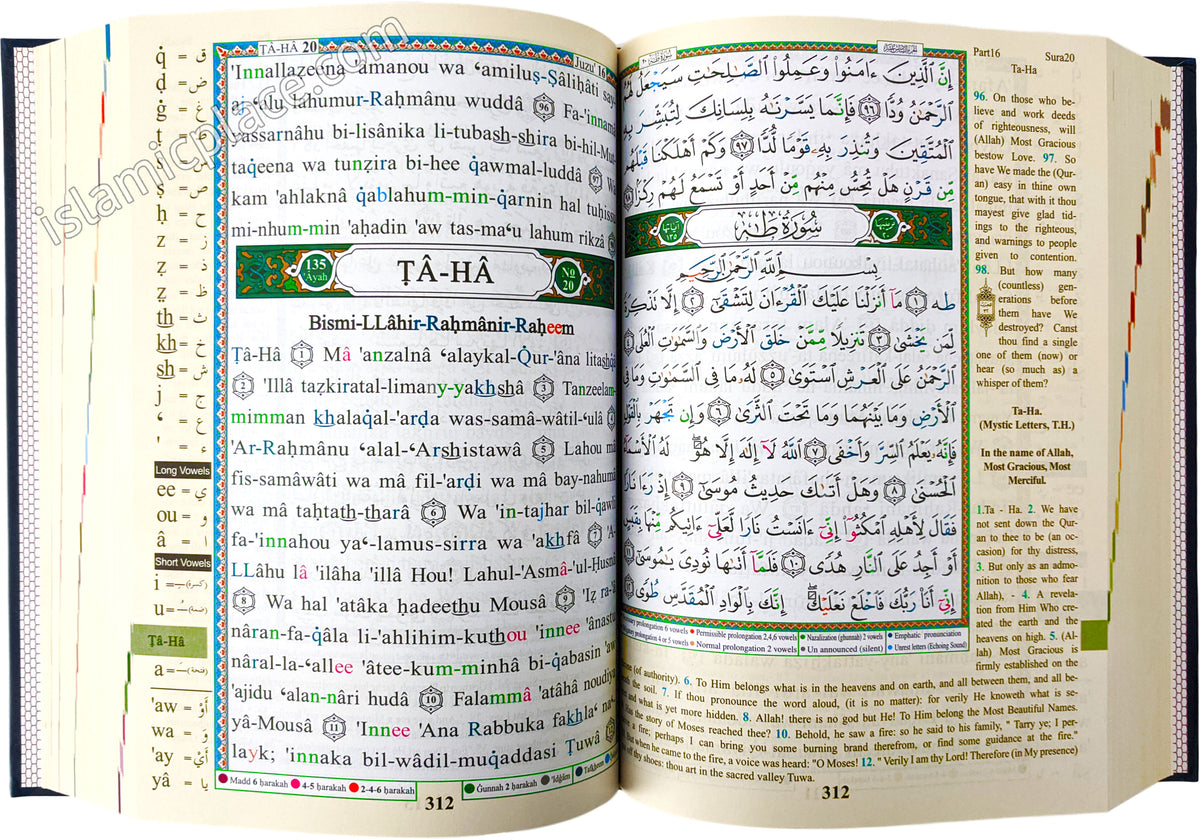 islamicplace.com
ق = q̇
ض = ḍ
غ = ġ
ط = ṭ
ص = ṣ
ح = ḥ
ز = z
ذ = ẓ
ظ = ẓ
ث = th
خ = kh
ش = sh
ج = j
ع = ‘
ء = '
Long Vowels
ee = ي
ou = و
â = ا
Short Vowels
i = (كسرة)
u = (ضمة)
Ṭâ-Hâ
a = (فتحة)
'aw = أَوْ
wa = و
'ay = أَيْ
yâ = يا
ṬÂ-HÂ 20
Juzu' 16
'Innallazeena 'âmanou wa ‘amiluṣ-Ṣâliḥâti say-
aj-‘alu lahumur-Raḥmânu wuddâ 96 Fa-'innamâ
yassarnâhu bi-lisânika li-tubash-shira bi-hil-Mut-
taqeena wa tunẓira bi-hee q̇awmal-luddâ 97 Wa
kam 'ahlaknâ q̇ablahum-min-q̇arnin hal tuḥissu
mi-nhum-min 'aḥadin 'aw tas-ma‘u lahum rikzâ
135 Âyah
ṬÂ-HÂ
No 20
Bismi-LLâhir-Raḥmânir-Raḥeem
Ṭâ-Hâ 1 Mâ 'anzalnâ ‘alaykal-Q̇ur-'âna litashq̇â
2 'Illâ taẓkiratal-limany-yakhshâ 3 Tanzeelam-
mimman khalaq̇al-'arḍa was-samâ-wâtil-‘ulâ 4
'Ar-Raḥmânu ‘alal-‘Arshistawâ 5 Lahou mâ
fis-samâwâti wa mâ fil-'arḍi wa mâ bay-nahumâ
wa mâ taḥtath-tharâ 6 Wa 'in-tajhar bil-q̇awli
fa-'innahou ya‘-lamus-sirra wa 'akhfâ 7 'A-
LLâhu lâ 'ilâha 'illâ Hou! Lahul-'Asmâ-'ul-Ḥusnâ
8 Wa hal 'atâka ḥadeethu Mousâ 9 'Iẓ ra-'â
nâran-fa-q̇âla li-'ahlihim-kuthou 'innee 'ânastu
nâral-la-‘allee 'âtee-kum-minhâ bi-q̇abasin 'aw
'ajidu ‘alan-nâri hudâ 10 Falammâ 'atâhâ noudiya
yâ-Mousâ 11 'Innee 'Ana Rabbuka fakhla‘ na‘-
layk; 'innaka bil-wâdil-muq̇addasi Ṭuwâ
Madd 6 ḥarakah 4-5 ḥarakah 2-4-6 ḥarakah Ġunnah 2 ḥarakah 'Idġâm Tafkheem
312
إِنَّ الَّذِينَ ءَامَنُوا وَعَمِلُوا الصَّالِحَاتِ سَيَجْعَلُ لَهُمُ
الرَّحْمَٰنُ وُدًّا ٩٦ فَإِنَّمَا يَسَّرْنَاهُ بِلِسَانِكَ لِتُبَشِّرَ بِهِ
الْمُتَّقِينَ وَتُنذِرَ بِهِ قَوْمًا لُّدًّا ٩٧ وَكَمْ أَهْلَكْنَا قَبْلَهُم
مِّن قَرْنٍ هَلْ تُحِسُّ مِنْهُم مِّنْ أَحَدٍ أَوْ تَسْمَعُ لَهُمْ رِكْزًا ٩٨
ترتيبها ٢٠
سُورَةُ طه
آياتها ١٣٥
بِسْمِ اللَّهِ الرَّحْمَٰنِ الرَّحِيمِ
طه ١ مَا أَنزَلْنَا عَلَيْكَ الْقُرْءَانَ لِتَشْقَىٰ ٢ إِلَّا تَذْكِرَةً
لِّمَن يَخْشَىٰ ٣ تَنزِيلًا مِّمَّنْ خَلَقَ الْأَرْضَ وَالسَّمَاوَاتِ الْعُلَى ٤
الرَّحْمَٰنُ عَلَى الْعَرْشِ اسْتَوَىٰ ٥ لَهُ مَا فِي السَّمَاوَاتِ وَمَا فِي
الْأَرْضِ وَمَا بَيْنَهُمَا وَمَا تَحْتَ الثَّرَىٰ ٦ وَإِن تَجْهَرْ بِالْقَوْلِ
فَإِنَّهُ يَعْلَمُ السِّرَّ وَأَخْفَى ٧ اللَّهُ لَا إِلَٰهَ إِلَّا هُوَ لَهُ الْأَسْمَاءُ
الْحُسْنَىٰ ٨ وَهَلْ أَتَاكَ حَدِيثُ مُوسَىٰ ٩ إِذْ رَءَا نَارًا
فَقَالَ لِأَهْلِهِ امْكُثُوا إِنِّي ءَانَسْتُ نَارًا لَّعَلِّي ءَاتِيكُم مِّنْهَا بِقَبَسٍ
أَوْ أَجِدُ عَلَى النَّارِ هُدًى ١٠ فَلَمَّا أَتَاهَا نُودِيَ يَامُوسَىٰ ١١
إِنِّي أَنَا رَبُّكَ فَاخْلَعْ نَعْلَيْكَ إِنَّكَ بِالْوَادِ الْمُقَدَّسِ طُوًى ١٢
prolongation 6 vowels Permissible prolongation 2,4,6 vowels Nazalization (ghunnah) 2 vowels Emphatic pronunciation
prolongation 4 or 5 vowels Normal prolongation 2 vowels Un announced (silent) Unrest letters (Echoing Sound)
Part16 Sura20
Ta-Ha
96. On those who be-
lieve and work deeds
of righteousness, will
(Allah) Most Gracious
bestow Love. 97. So
have We made the (Qur-
an) easy in thine own
tongue, that with it thou
mayest give glad tid-
ings to the righteous,
and warnings to people
given to contention.
98. But how many
(countless) gen-
erations before
them have We
destroyed? Canst
thou find a single
one of them (now) or
hear (so much as) a
whisper of them?
Ta-Ha.
(Mystic Letters, T.H.)
In the name of Allah,
Most Gracious, Most
Merciful.
1.Ta - Ha. 2. We have
not sent down the Qur-
an to thee to be (an oc-
casion) for thy distress,
3. But only as an admo-
nition to those who fear
Allah), - 4. A revela-
tion from Him Who cre-
ated the earth and the
heavens on high. 5. (Al-
lah) Most Gracious is
firmly established on the
(of authority). 6. To Him belongs what is in the heavens and on earth, and all between them, and all be-
the soil. 7. If thou pronounce the word aloud, (it is no matter): for verily He knoweth what is se-
and what is yet more hidden. 8. Allah! there is no god but He! To Him belong the Most Beautiful Names.
the story of Moses reached thee? 10. Behold, he saw a fire: so he said to his family, " Tarry ye; I per-
a fire; perhaps I can bring you some burning brand therefrom, or find some guidance at the fire."
when he came to the fire, a voice was heard: "O Moses! 12. " Verily I am thy Lord! Therefore (in My presence)
off thy shoes: thou art in the sacred valley Tuwa.
312